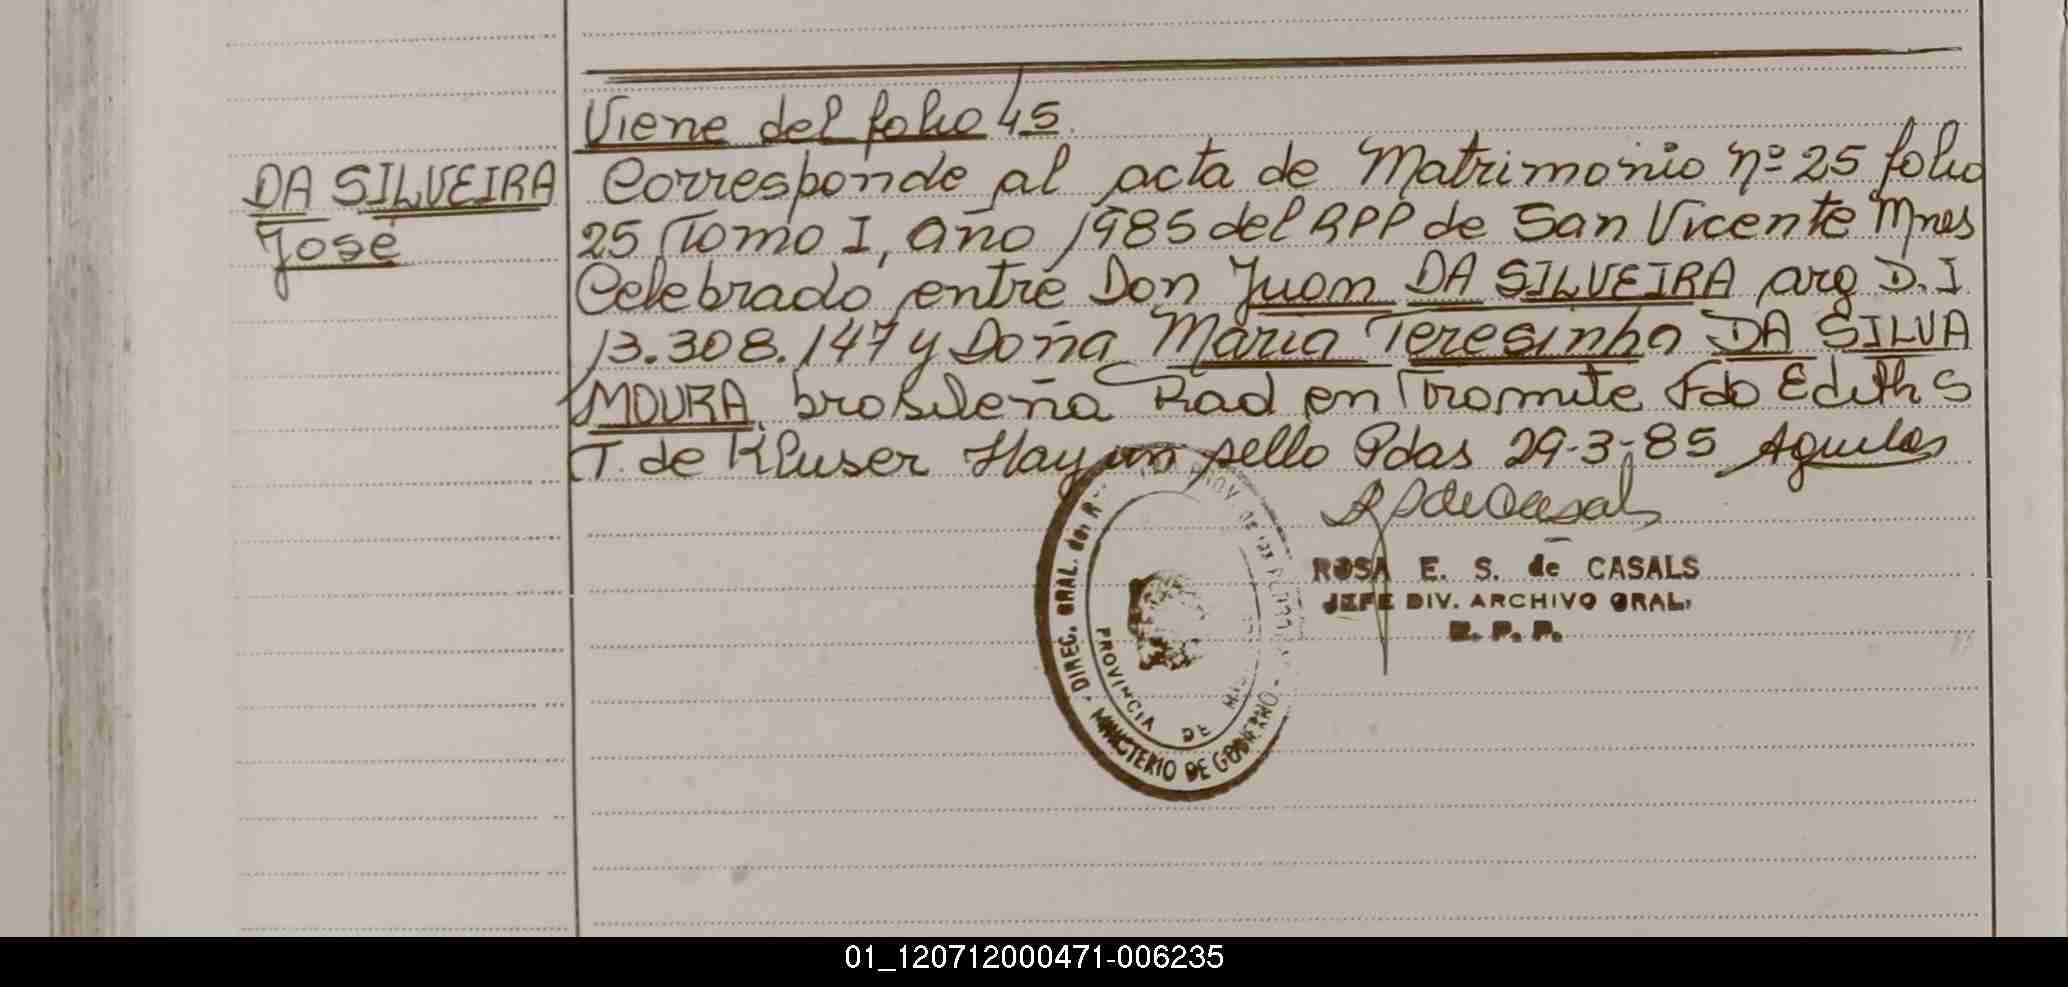 Viene del folio 45
DA SILVEIRA
José
Corresponde al acta de Matrimonio nº 25 folio
25 Tomo I, año 1985 del RPP de San Vicente Mnes
Celebrado entre Don Juan DA SILVEIRA arg D.I
13.308.147 y Doña Maria Teresinha DA SILVA
MOURA, brasileña Rad en Tramite Fdo Edith S
T. de Kluser Hay un sello Pdas 29-3-85 Aguilar
ROSA E. S. de CASALS
JEFE DIV. ARCHIVO GRAL.
R. P. P.
DIREC. GRAL. del R
PROV. DE LAS PERS
MINISTERIO DE GOBIERNO
PROVINCIA DE MIS
01_120712000471-006235